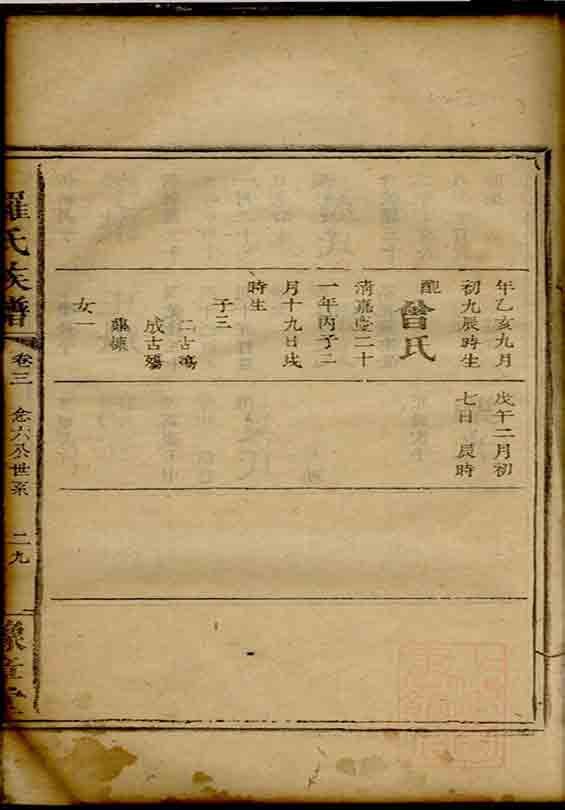 年乙亥九月
初九辰時生
配
曾氏
清嘉慶二十
一年丙子二
月十九日戌
時生
子三
二古殤
成古殤
女一
戊午二月初
七日辰時
羅氏族譜
卷三
念六公世系
二九
豫章堂